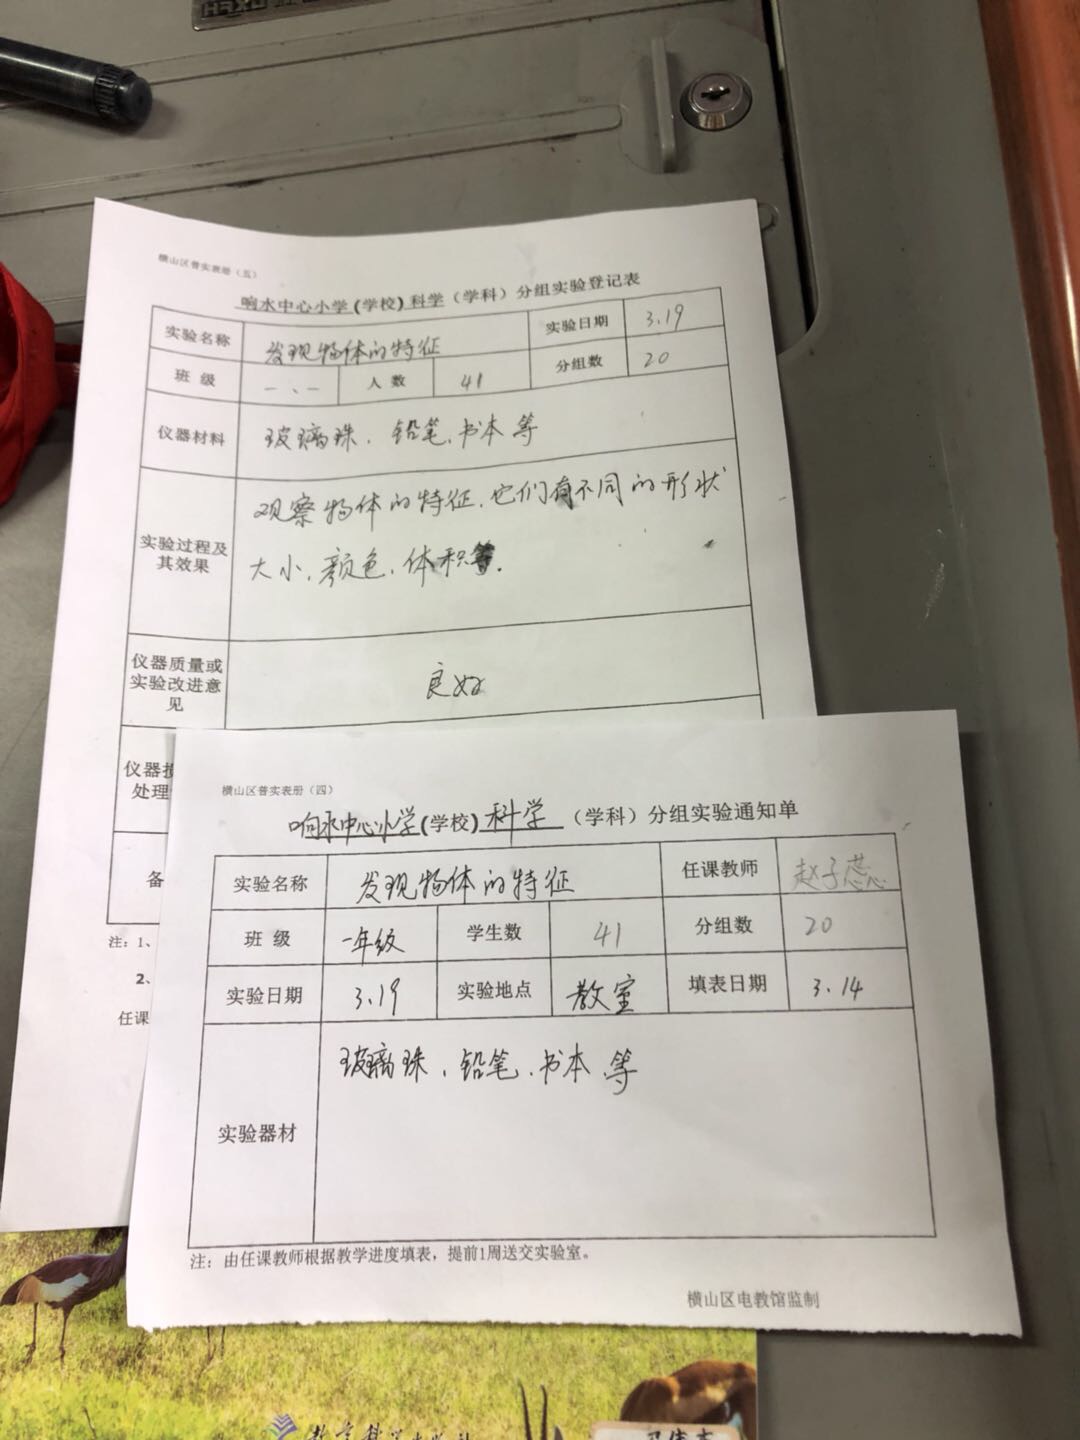 横山区普实表册（五）
响水中心小学(学校)科学（学科）分组实验登记表
实验名称 发现物体的特征 实验日期 3.19
班 级 一、一 人 数 41 分组数 20
仪器材料 玻璃珠、铅笔、书本等
实验过程及其效果 观察物体的特征，它们有不同的形状
大小、颜色、体积等.
仪器质量或
实验改进意
见
良好
仪器损
处理
备
注：1、
2、
任课
横山区普实表册（四）
响水中心小学(学校)科学（学科）分组实验通知单
实验名称 发现物体的特征 任课教师 赵子蕊
班 级 一年级 学生数 41 分组数 20
实验日期 3.19 实验地点 教室 填表日期 3.14
实验器材 玻璃珠、铅笔、书本、等
注：由任课教师根据教学进度填表，提前1周送交实验室。
横山区电教馆监制
教育科学出版社